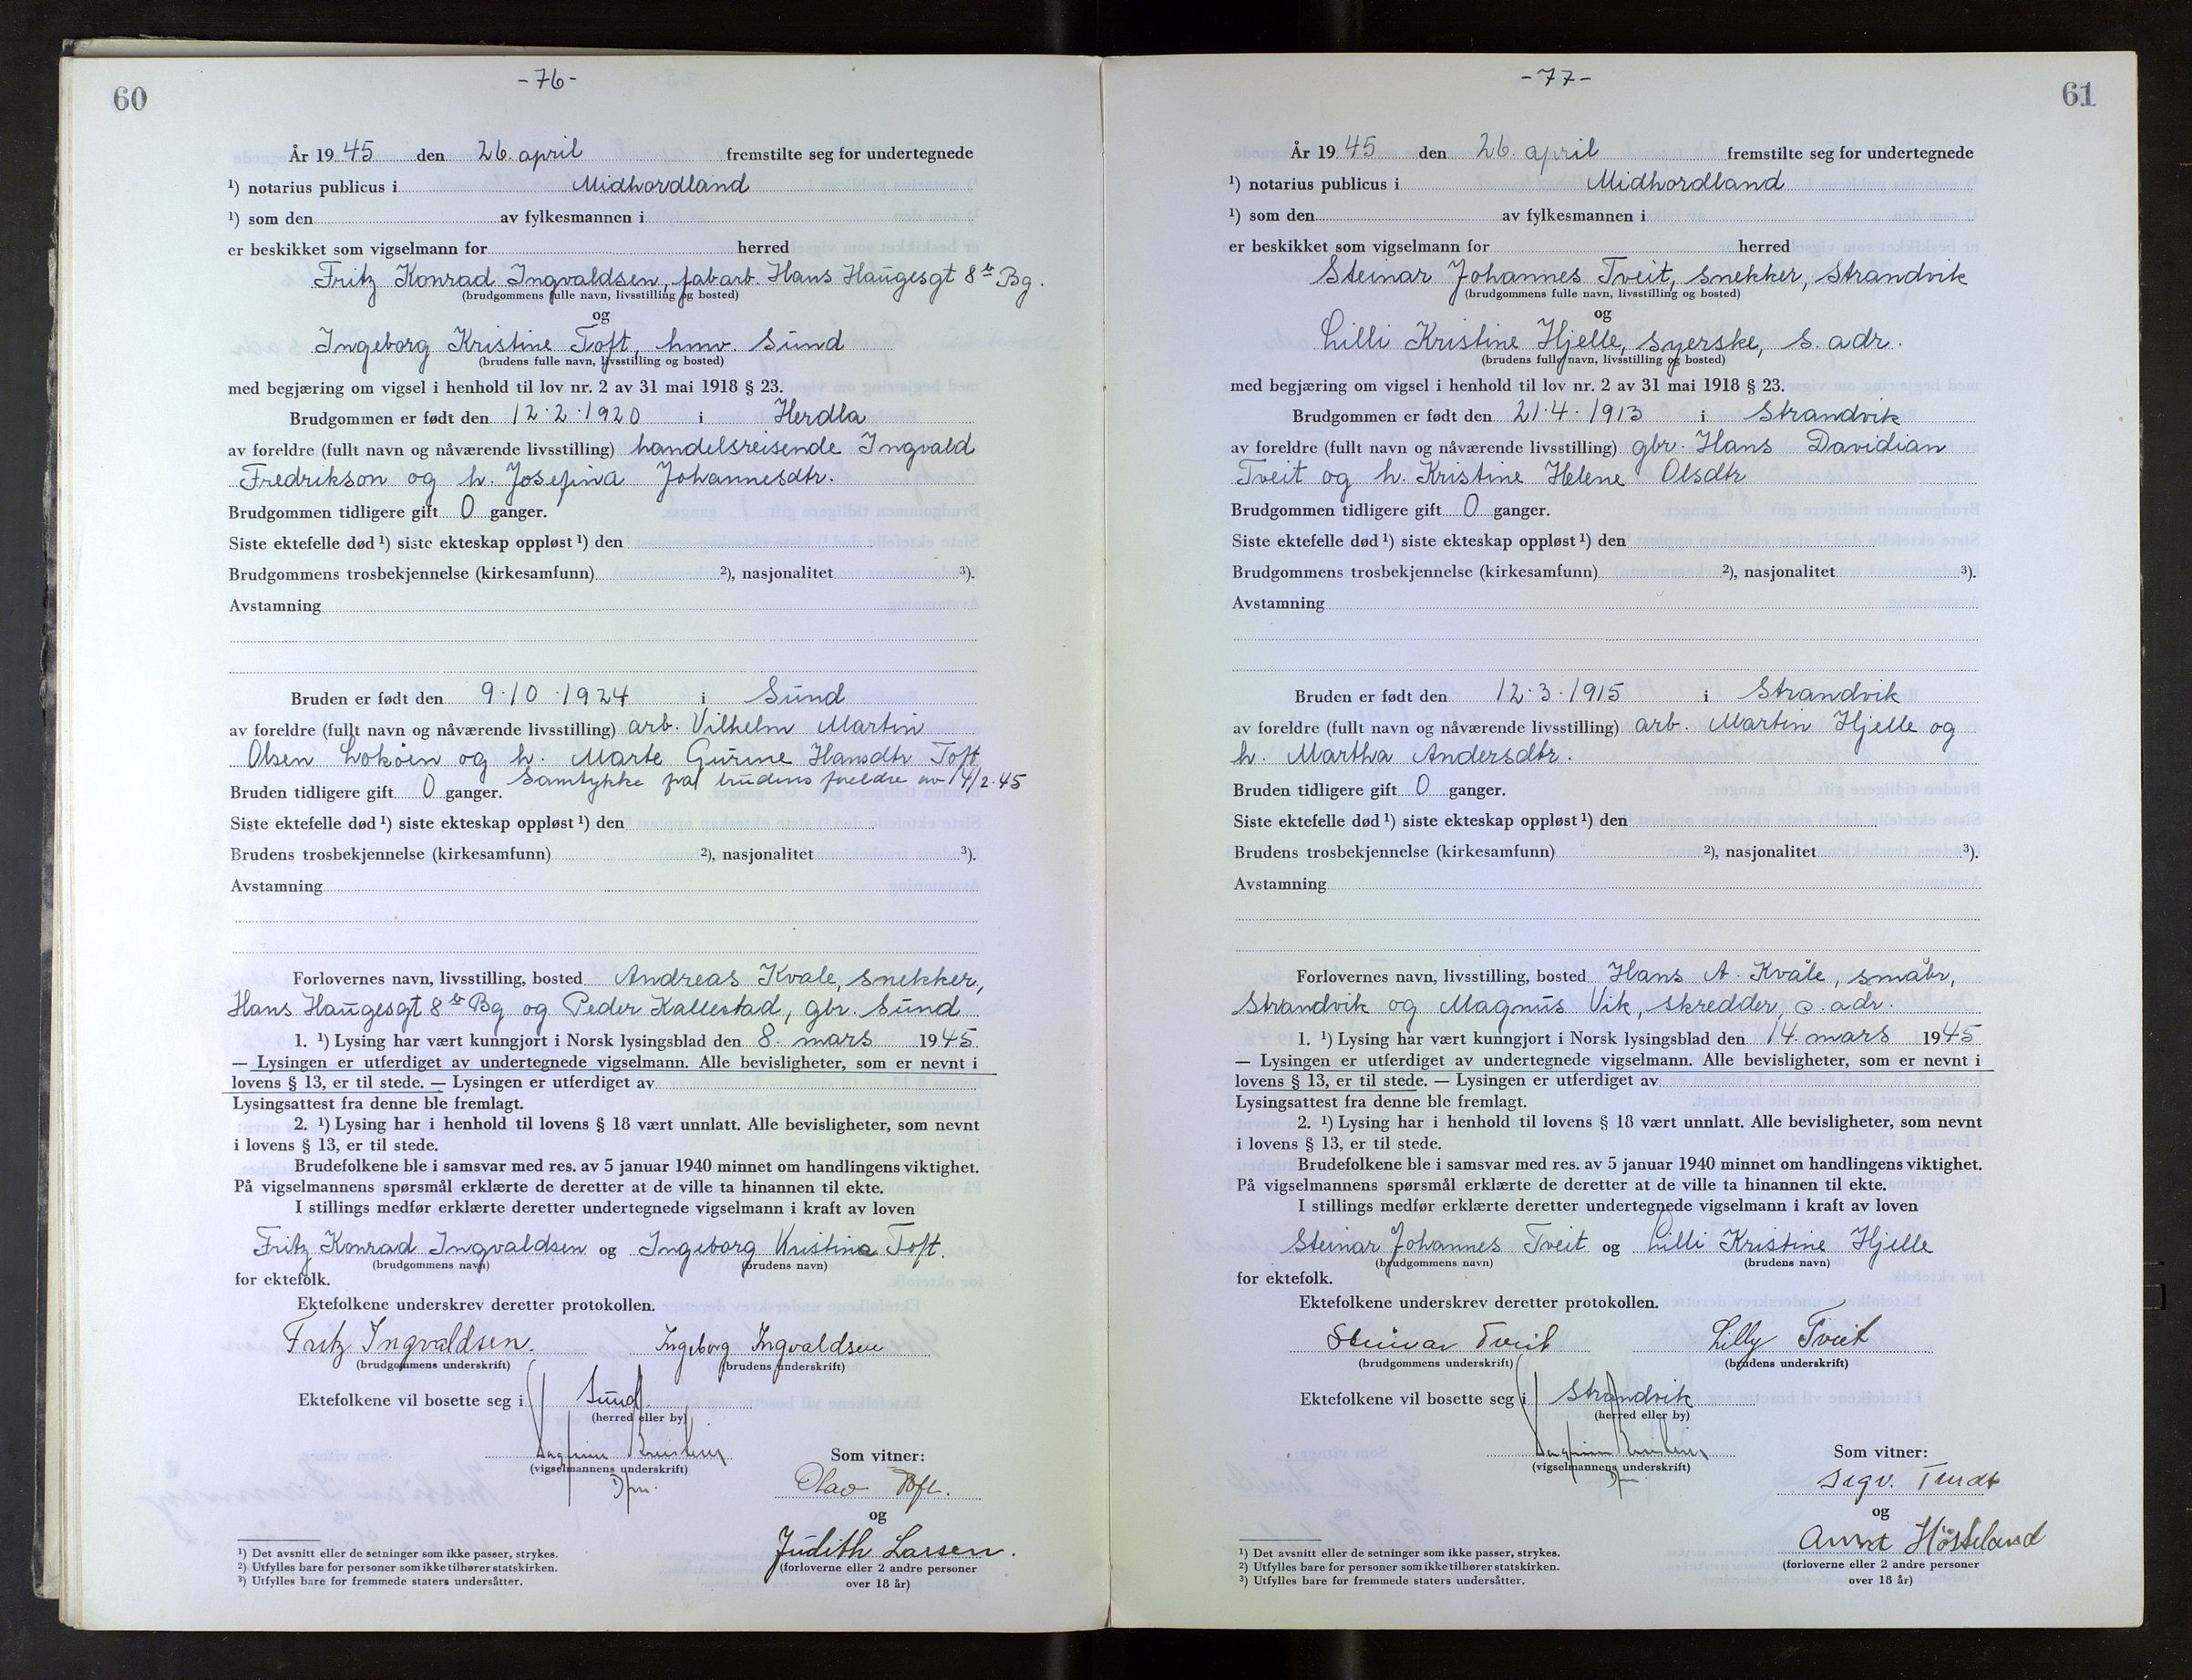 60
-76-
År 1945 den 26. april fremstilte seg for undertegnede
¹) notarius publicus i Midhordland
¹) som den av fylkesmannen i
er beskikket som vigselmann for herred
Fritz Konrad Ingvaldsen, fabarb. Hans Haugesgt 8 Bg.
(brudgommens fulle navn, livsstilling og bosted)
og
Ingeborg Kristine Toft, hmv. Sund
(brudens fulle navn, livsstilling og bosted)
med begjæring om vigsel i henhold til lov nr. 2 av 31 mai 1918 § 23.
Brudgommen er født den 12.2.1920 i Herdla
av foreldre (fullt navn og nåværende livsstilling) handelsreisende Ingvald
Fredrikson og h. Josefina Johannesdtr.
Brudgommen tidligere gift 0 ganger.
Siste ektefelle død ¹) siste ekteskap oppløst ¹) den
Brudgommens trosbekjennelse (kirkesamfunn) ²), nasjonalitet ³).
Avstamning
Bruden er født den 9.10.1924 i Sund
av foreldre (fullt navn og nåværende livsstilling) arb. Vilhelm Martin
Olsen Lokøen og h. Marte Gurine Hansdtr Toft
Samtykke fra brudens foreldre av 14/2.45
Bruden tidligere gift 0 ganger.
Siste ektefelle død ¹) siste ekteskap oppløst ¹) den
Brudens trosbekjennelse (kirkesamfunn) ²), nasjonalitet ³).
Avstamning
Forlovernes navn, livsstilling, bosted Andreas Kvale, snekker,
Hans Haugesgt 8 Bg og Peder Kallestad, gbr. Sund
1. ¹) Lysing har vært kunngjort i Norsk lysingsblad den 8. mars 1945
— Lysingen er utferdiget av undertegnede vigselmann. Alle bevisligheter, som er nevnt i
lovens § 13, er til stede. — Lysingen er utferdiget av
Lysingsattest fra denne ble fremlagt.
2. ¹) Lysing har i henhold til lovens § 18 vært unnlatt. Alle bevisligheter, som nevnt
i lovens § 13, er til stede.
Brudefolkene ble i samsvar med res. av 5 januar 1940 minnet om handlingens viktighet.
På vigselmannens spørsmål erklærte de deretter at de ville ta hinannen til ekte.
I stillings medfør erklærte deretter undertegnede vigselmann i kraft av loven
Fritz Konrad Ingvaldsen og Ingeborg Kristina Toft.
(brudgommens navn) (brudens navn)
for ektefolk.
Ektefolkene underskrev deretter protokollen.
Fritz Ingvaldsen. Ingeborg Ingvaldsen
(brudgommens underskrift) (brudens underskrift)
Ektefolkene vil bosette seg i Sund
(herred eller by)
(vigselmannens underskrift)
Som vitner:
Olav Toft.
og
Judith Larsen.
(forloverne eller 2 andre personer
over 18 år)
¹) Det avsnitt eller de setninger som ikke passer, strykes.
²) Utfylles bare for personer som ikke tilhører statskirken.
³) Utfylles bare for fremmede staters undersåtter.
61
-77-
År 1945 den 26. april fremstilte seg for undertegnede
¹) notarius publicus i Midhordland
¹) som den av fylkesmannen i
er beskikket som vigselmann for herred
Steinar Johannes Tveit, snekker, Strandvik
(brudgommens fulle navn, livsstilling og bosted)
og
Lilli Kristine Hjelle, syerske, s. adr.
(brudens fulle navn, livsstilling og bosted)
med begjæring om vigsel i henhold til lov nr. 2 av 31 mai 1918 § 23.
Brudgommen er født den 21.4.1913 i Strandvik
av foreldre (fullt navn og nåværende livsstilling) gbr. Hans Davidian
Tveit og h. Kristine Helene Olsdtr
Brudgommen tidligere gift 0 ganger.
Siste ektefelle død ¹) siste ekteskap oppløst ¹) den
Brudgommens trosbekjennelse (kirkesamfunn) ²), nasjonalitet ³).
Avstamning
Bruden er født den 12.3.1915 i Strandvik
av foreldre (fullt navn og nåværende livsstilling) arb. Martin Hjelle og
h. Martha Andersdtr.
Bruden tidligere gift 0 ganger.
Siste ektefelle død ¹) siste ekteskap oppløst ¹) den
Brudens trosbekjennelse (kirkesamfunn) ²), nasjonalitet ³).
Avstamning
Forlovernes navn, livsstilling, bosted Hans A. Kvåle, småbr,
Strandvik og Magnus Vik, skredder, s. adr.
1. ¹) Lysing har vært kunngjort i Norsk lysingsblad den 14. mars 1945
— Lysingen er utferdiget av undertegnede vigselmann. Alle bevisligheter, som er nevnt i
lovens § 13, er til stede. — Lysingen er utferdiget av
Lysingsattest fra denne ble fremlagt.
2. ¹) Lysing har i henhold til lovens § 18 vært unnlatt. Alle bevisligheter, som nevnt
i lovens § 13, er til stede.
Brudefolkene ble i samsvar med res. av 5 januar 1940 minnet om handlingens viktighet.
På vigselmannens spørsmål erklærte de deretter at de ville ta hinannen til ekte.
I stillings medfør erklærte deretter undertegnede vigselmann i kraft av loven
Steinar Johannes Tveit og Lilli Kristine Hjelle
(brudgommens navn) (brudens navn)
for ektefolk.
Ektefolkene underskrev deretter protokollen.
Steinar Tveit Lilly Tveit
(brudgommens underskrift) (brudens underskrift)
Ektefolkene vil bosette seg i Strandvik
(herred eller by)
(vigselmannens underskrift)
Som vitner:
og
Anna Hösteland
(forloverne eller 2 andre personer
over 18 år)
¹) Det avsnitt eller de setninger som ikke passer, strykes.
²) Utfylles bare for personer som ikke tilhører statskirken.
³) Utfylles bare for fremmede staters undersåtter.